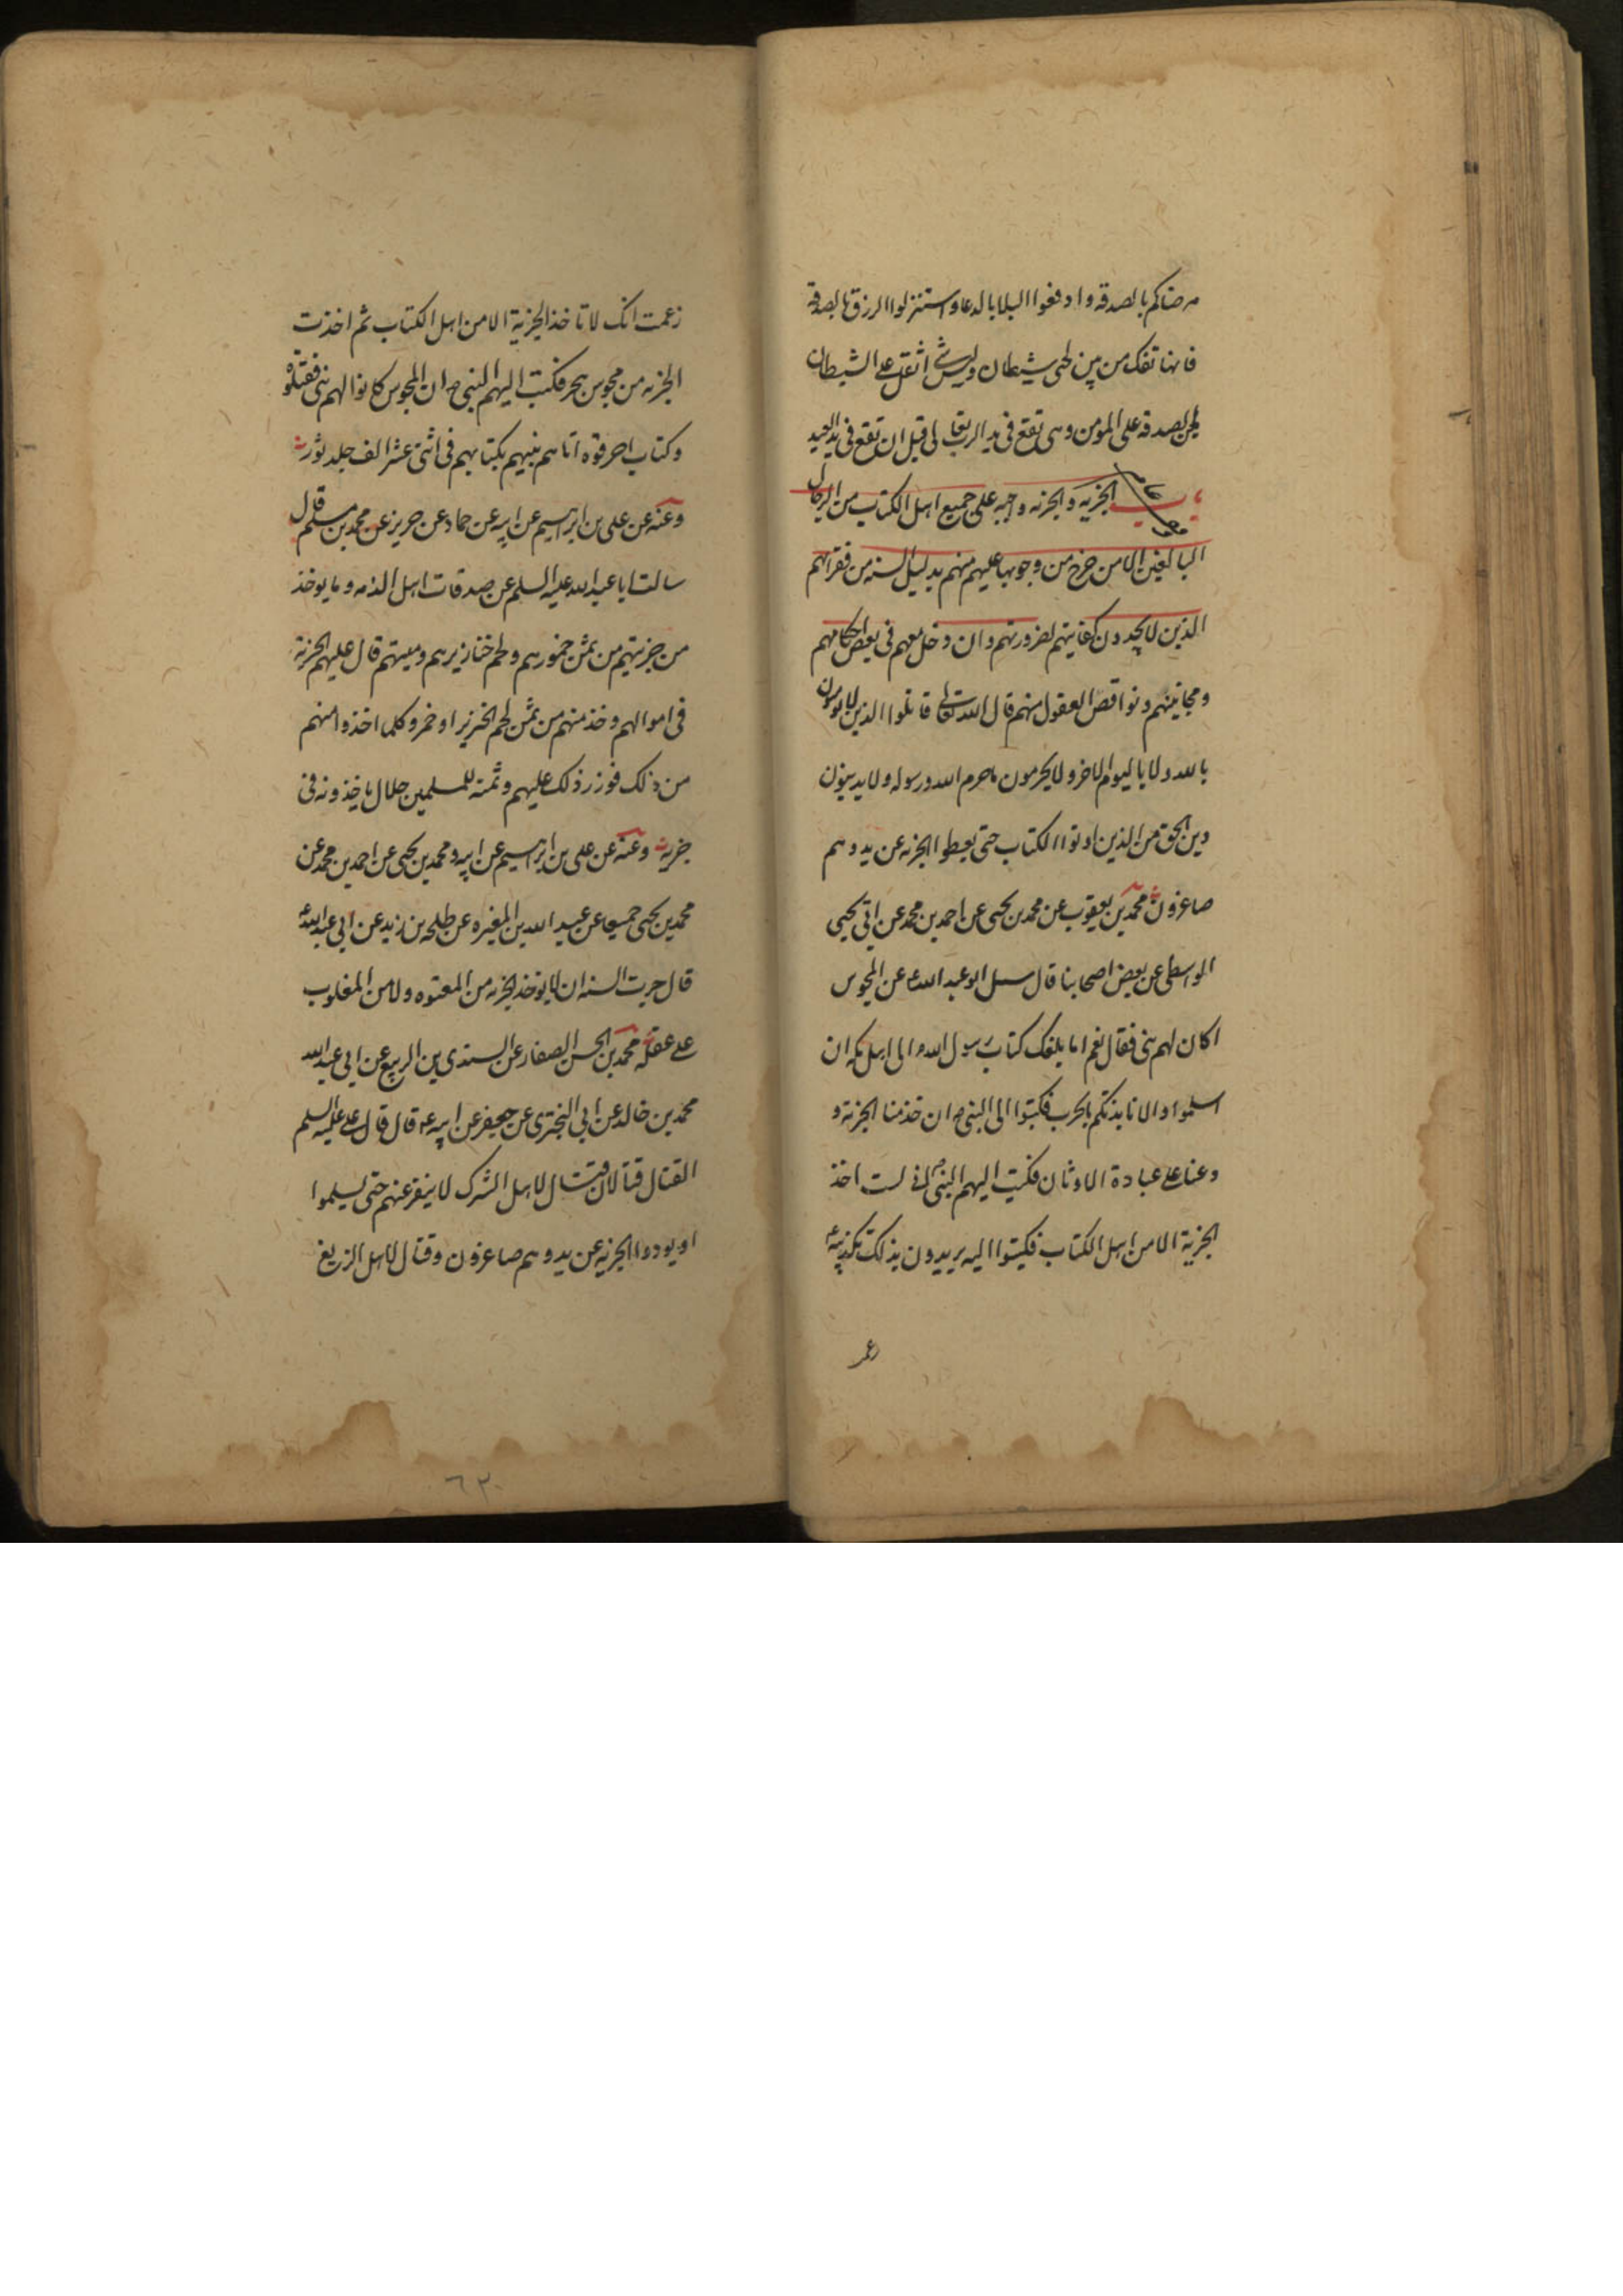 مرضاكم بالصدقه وادفعوا البلايا بالدعا واستنزلوا الرزق بالصدقة
فانها تفك من بين لحى شيطان وليس شئ اثقل على الشيطان
من الصدقه على المومن وهى تقع فى يد الرب تعالى قبل ان تقع فى يد العبد
باب الجزيه والجزيه واجبه على جميع اهل الكتاب من الرجال
البالغين الا من خرج من وجوبها عليهم منهم بدليل السنه من فقرائهم
الذين لا يجدون كفايتهم لضرورتهم وان دخل معهم فى بعض احكامهم
ومجانينهم ونواقص العقول منهم قال الله تعالى قاتلوا الذين لا يومنون
بالله ولا باليوم الاخر ولا يحرمون ما حرم الله ورسوله ولا يدينون
دين الحق من الذين اوتوا الكتاب حتى يعطوا الجزيه عن يد وهم
صاغرون محمد بن يعقوب عن محمد بن يحيى عن احمد بن محمد عن ابى يحيى
الواسطى عن بعض اصحابنا قال سئل ابو عبد الله ع عن المجوس
اكان لهم نبى فقال نعم اما بلغك كتاب رسول الله ص الى اهل مكه ان
اسلموا والا نابذتكم بالحرب فكتبوا الى النبى ص ان خذ منا الجزية و
دعنا على عبادة الاوثان فكتب اليهم النبى ص انى لست اخذ
الجزية الا من اهل الكتاب فكتبوا اليه يريدون بذلك تكذيبه
زعمت
زعمت انك لا تاخذ الجزية الا من اهل الكتاب ثم اخذت
الجزيه من مجوس هجر فكتب اليهم النبى ص ان المجوس كانوا لهم نبى فقتلوه
وكتاب احرقوه اتاهم نبيهم بكتابهم فى اثنى عشر الف جلد ثور
وعنه عن على بن ابراهيم عن ابيه عن حماد عن حريز عن محمد بن مسلم قال
سالت ابا عبد الله عليه السلم عن صدقات اهل الذمه وما يوخذ
من جزيتهم من ثمن خمورهم ولحم خنازيرهم وميتتهم قال عليهم الجزية
فى اموالهم وخذ منهم من ثمن لحم الخنزير او خمر وكلما اخذوا منهم
من ذلك فوزر ذلك عليهم وثمنه للمسلمين حلال ياخذونه فى
جزيه وعنه عن على بن ابراهيم عن ابيه ومحمد بن يحيى عن احمد بن محمد عن
محمد بن يحيى جميعا عن عبد الله بن المغيره عن طلحه بن زيد عن ابى عبد الله ع
قال جرت السنه ان لا يوخذ الجزيه من المعتوه ولا من المغلوب
على عقله محمد بن الحسن الصفار عن السندى بن الربيع عن ابى عبد الله
محمد بن خالد عن ابى البخترى عن جعفر عن ابيه ع قال قال على عليه السلم
القتال قتالان قتال لاهل الشرك لا ينفر عنهم حتى يسلموا
او يودوا الجزيه عن يد وهم صاغرون وقتال لاهل الزيغ
٦٣